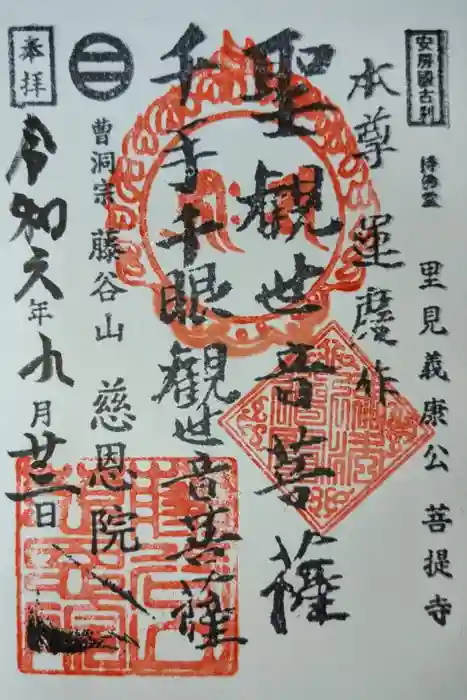 安房國古刹
里見義康公 菩提寺
本尊運慶作
聖観世音菩薩
千手千眼観世音菩薩
曹洞宗 藤谷山 慈恩院
奉拝
令和六年九月廿三日